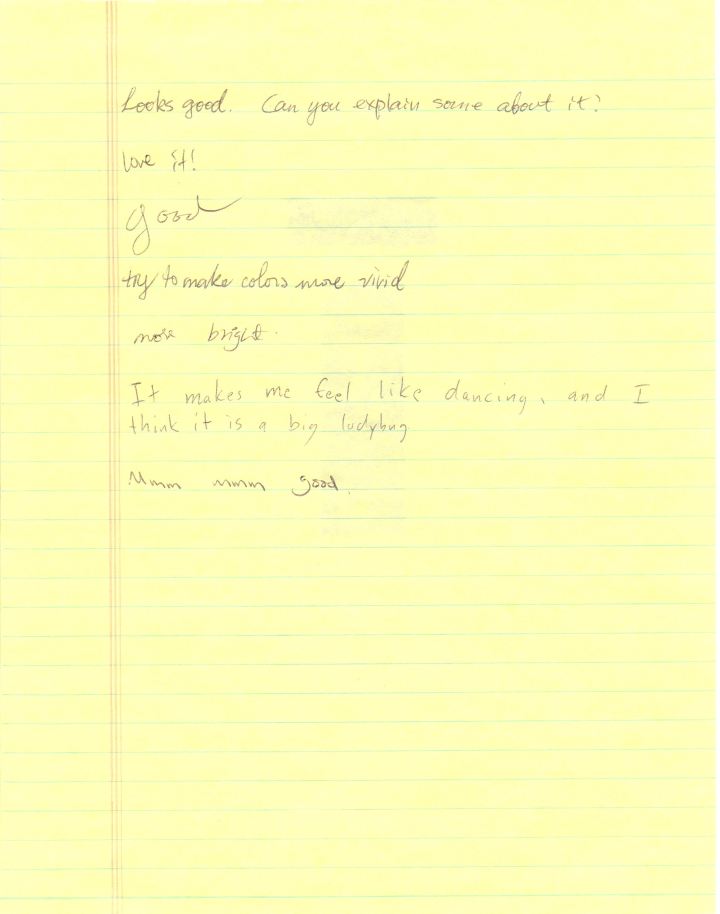 Looks good. Can you explain some about it?
love it!
good
try to make colors more vivid
more bright.
It makes me feel like dancing, and I
think it is a big ladybug
Mmm mmm good.